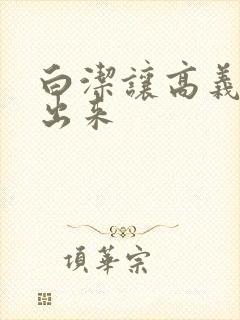 白潔讓高義
出来
項華宗